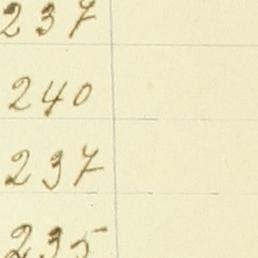 237
240
237
235